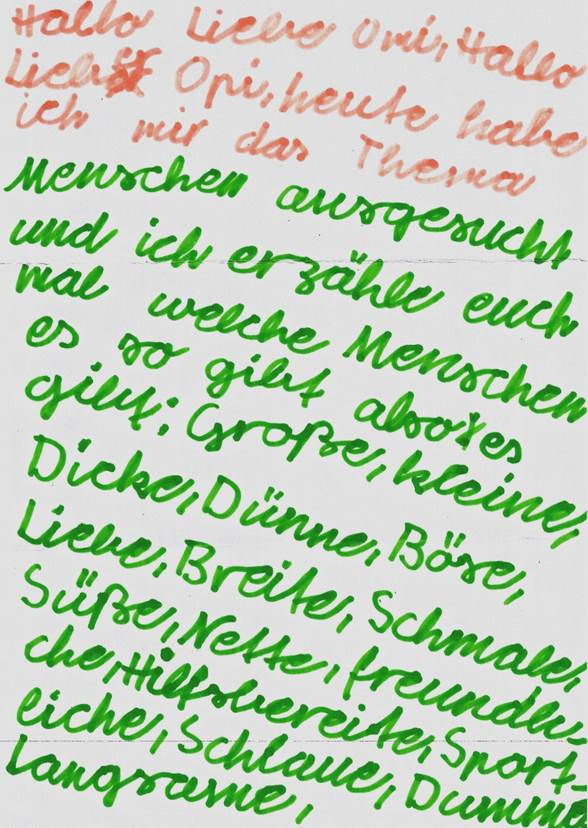 Hallo Liebe Omi, Hallo
Lieber Opi, heute habe
ich mir das Thema
Menschen ausgesucht
und ich erzähle euch
mal welche Menschen
es so gibt also es
gibt; Große, kleine,
Dicke, Dünne, Böse,
Liebe, Breite, Schmale,
Süße, Nette, freundli-
che, Hilfsbereite, Sport-
liche, Schlaue, Dumme
Langsame,